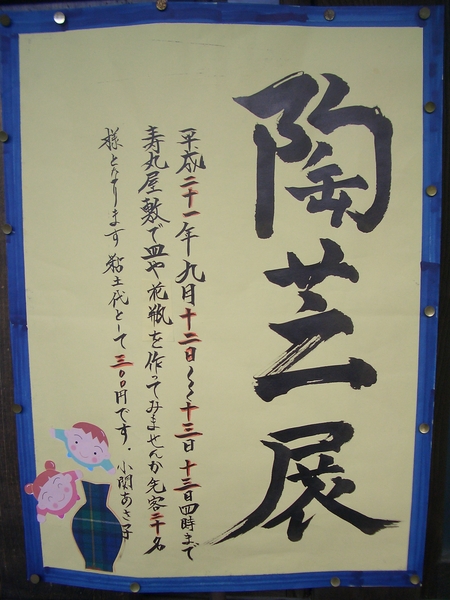 陶芸展
平成二十一年九月十二日〜十三日 十三日四時まで
寿丸屋敷で皿や花瓶を作ってみませんか 先客二十名
様となります 粘土代として三〇〇円です. 小関あさ子